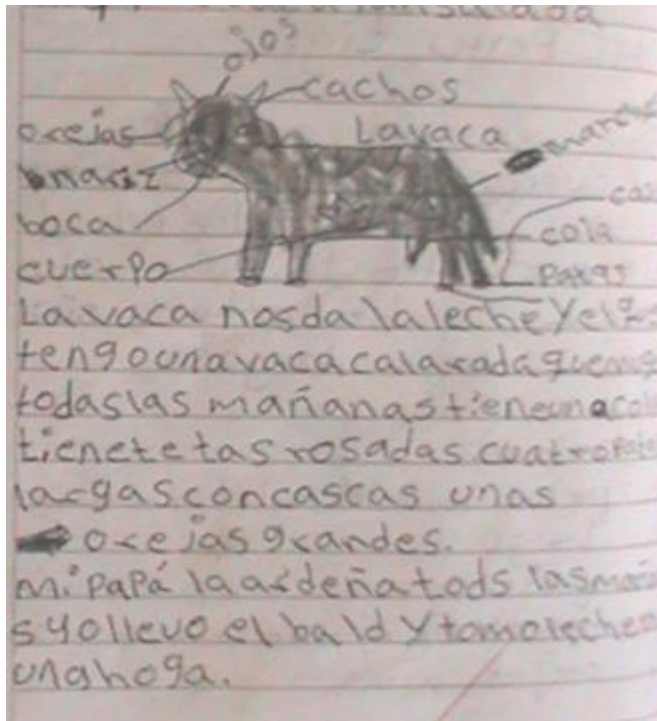 ojos
cachos
orejas
Lavaca
nariz
boca
cola
cuerpo
patas
La vaca nos da la leche y el
tengo una vaca calarada que
todas las mañanas tiene una
tiene tetas rosadas cuatro
largas con cascas unas
orejas grandes.
mi papá la ardeña tods las
s yo llevo el bald y tomo leche
una hoga.